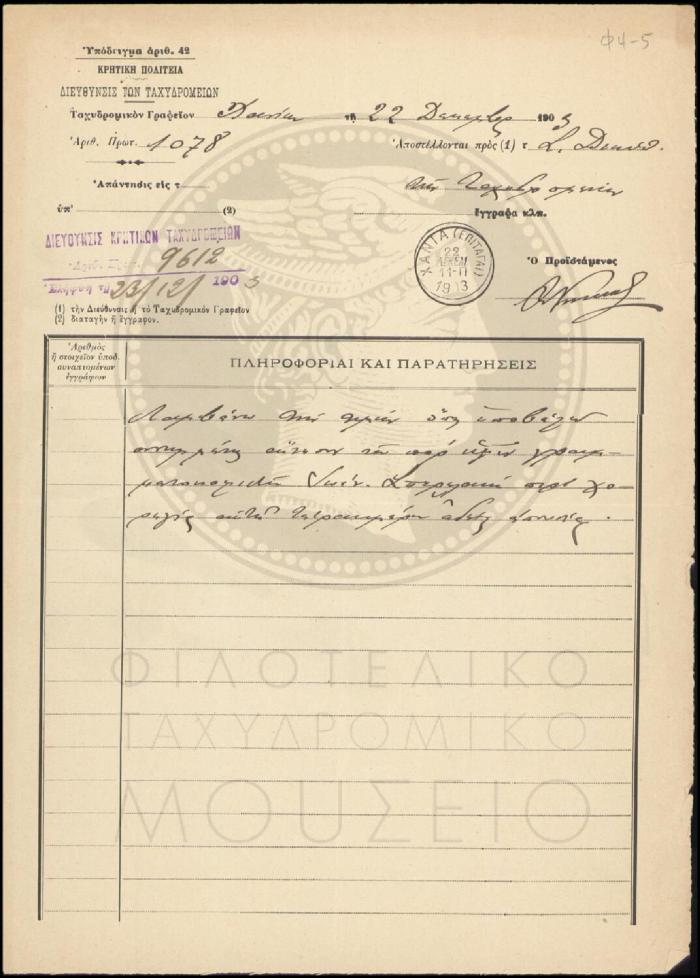 Φ4-5
Ὑπόδειγμα ἀριθ. 42
ΚΡΗΤΙΚΗ ΠΟΛΙΤΕΙΑ
ΔΙΕΥΘΥΝΣΙΣ ΤΩΝ ΤΑΧΥΔΡΟΜΕΙΩΝ
Ταχυδρομικὸν Γραφεῖον Χανίων τῇ 22 Δεκεμβρ 1903
Ἀριθ. Πρωτ. 1078
Ἀποστέλλονται πρὸς (1) τ Σ. Διευθ.
Ἀπάντησις εἰς τ
τῶν Ταχυδρομείων
ὑπ' (2)
ἔγγραφα κλπ.
ΔΙΕΥΘΥΝΣΙΣ ΚΡΗΤΙΚΩΝ ΤΑΧΥΔΡΟΜΕΙΩΝ
Ἀριθ. Πρωτ. 9612
Ἐλήφθη τῇ 23/12/ 1903
ΧΑΝΙΑ (ΕΠΙΤΑΓΑΙ)
22
ΔΕΚΕΜ
11-Π
1903
Ὁ Προϊστάμενος
(1) τὴν Διεύθυνσιν ἢ τὸ Ταχυδρομικὸν Γραφεῖον
(2) διαταγὴν ἢ ἔγγραφον.
Ἀριθμὸς
ἢ στοιχεῖον ὑποδ.
συναπτομένων
ἐγγράφων
ΠΛΗΡΟΦΟΡΙΑΙ ΚΑΙ ΠΑΡΑΤΗΡΗΣΕΙΣ
Λαμβάνω τὴν τιμὴν ὅπως ὑποβάλω
συνημμένως αἴτησιν τοῦ παρ' ἡμῖν γραμ-
ματοκομιστοῦ περὶ χο-
ρηγίας αὐτῷ τετραημέρου ἀδείας ἀπουσίας.
ΦΙΛΟΤΕΛΙΚΟ
ΤΑΧΥΔΡΟΜΙΚΟ
ΜΟΥΣΕΙΟ